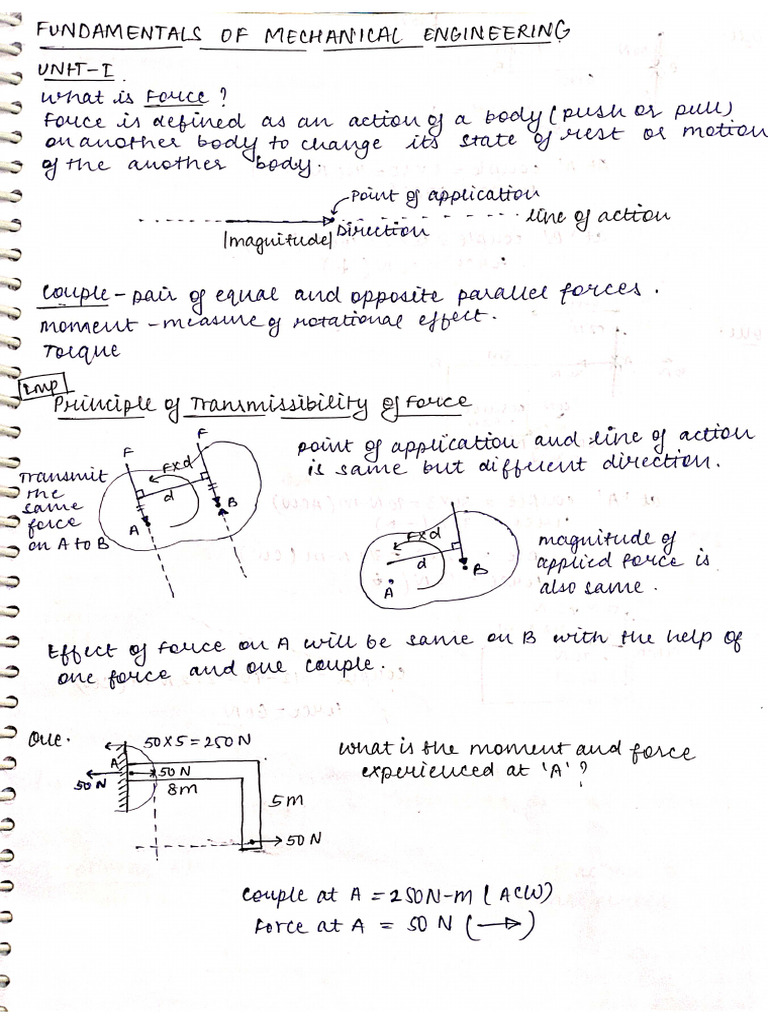 FUNDAMENTALS OF MECHANICAL ENGINEERING
UNIT-I
What is Force?
Force is defined as an action of a body (push or pull)
on another body to change its state of rest or motion
of the another body.
Point of application
line of action
|magnitude|
Direction
Couple - pair of equal and opposite parallel forces.
Moment - measure of rotational effect.
Torque
Imp
Principle of Transmissibility of Force
Transmit
the
same
force
on A to B
F
F
F×d
d
A
B
point of application and line of action
is same but different direction.
F×d
d
A
B
magnitude of
applied force is
also same.
Effect of Force on A will be same on B with the help of
one force and one couple.
Que.
50×5=250N
A
50 N
50N
8m
5m
50 N
what is the moment and force
experienced at 'A'?
Couple at A = 250N-m (ACW)
Force at A = 50 N (→)